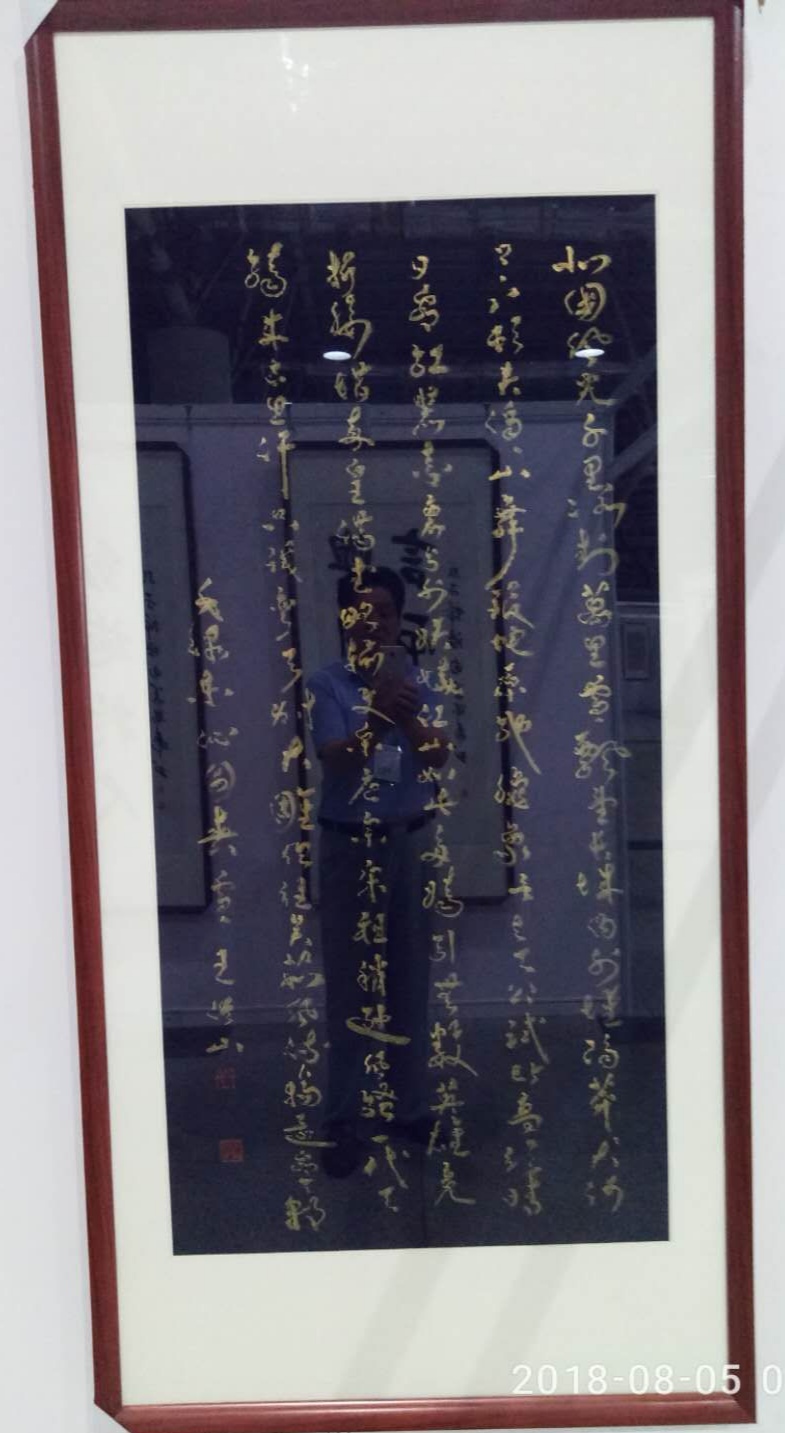 北國風光千里冰封萬里雪飄望長城內外惟餘莽大河
上下頓失滔滔山舞銀蛇原馳蠟象欲與天公試比高須晴
日看紅裝素裹分外妖嬈江山如此多嬌引無數英雄競
折腰惜秦皇漢武略輸文采唐宗宋祖稍遜風騷一代天
驕成吉思汗只識彎弓射大雕俱往矣數風流人物還看今朝
毛澤東沁園春雪 王洪山
2018-08-05 0